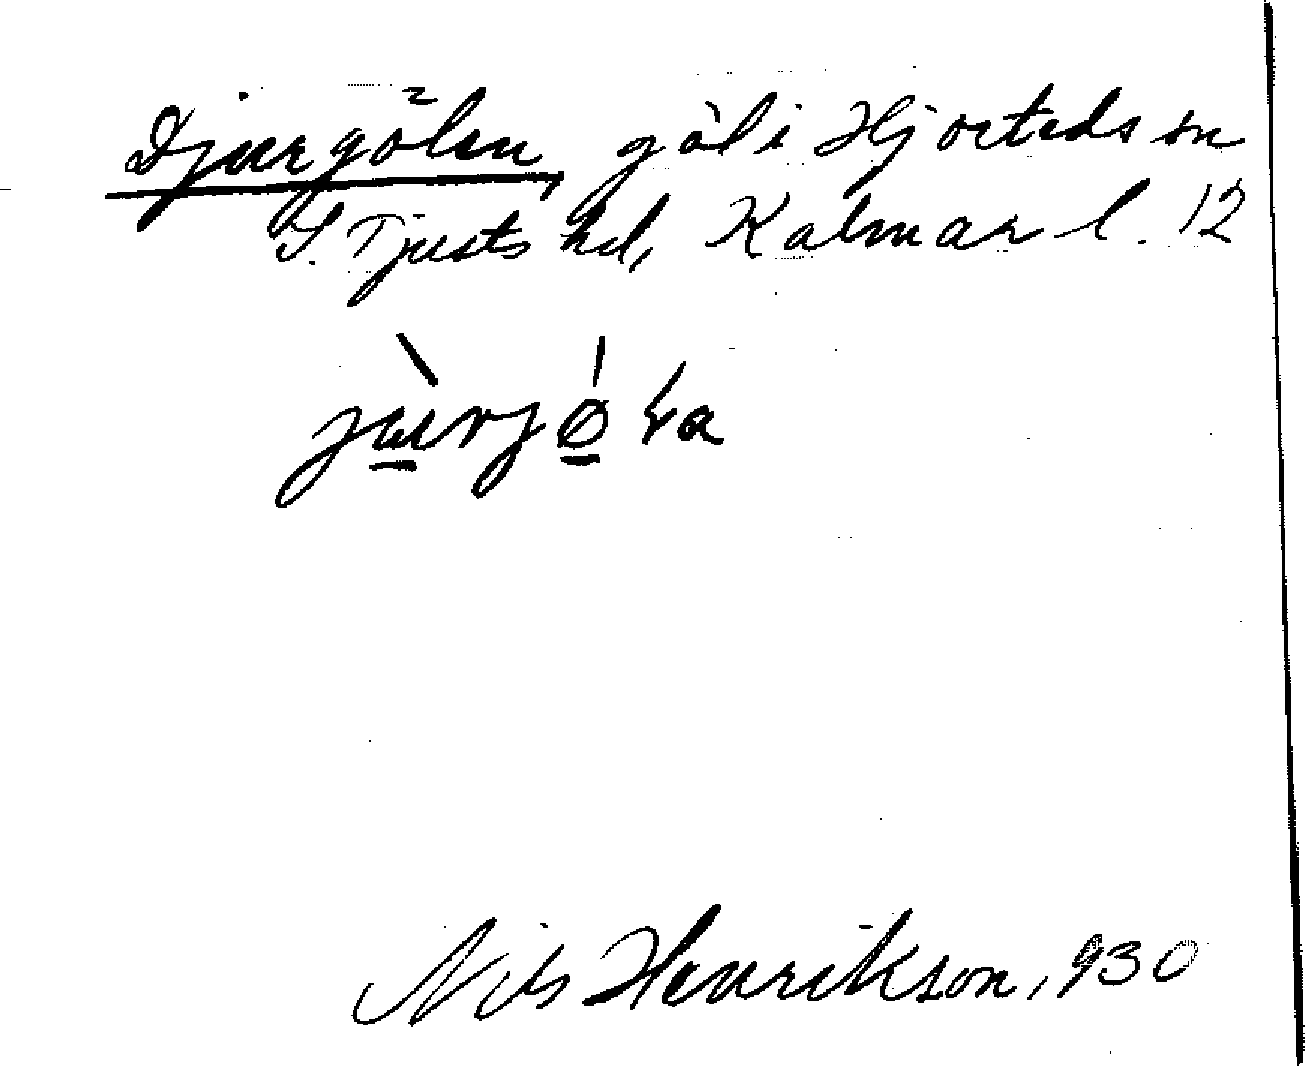 Djurgölen, göl i Hjorteds sn
S. Tjusts hd, Kalmar l. 12
Nils Henrikson, 930